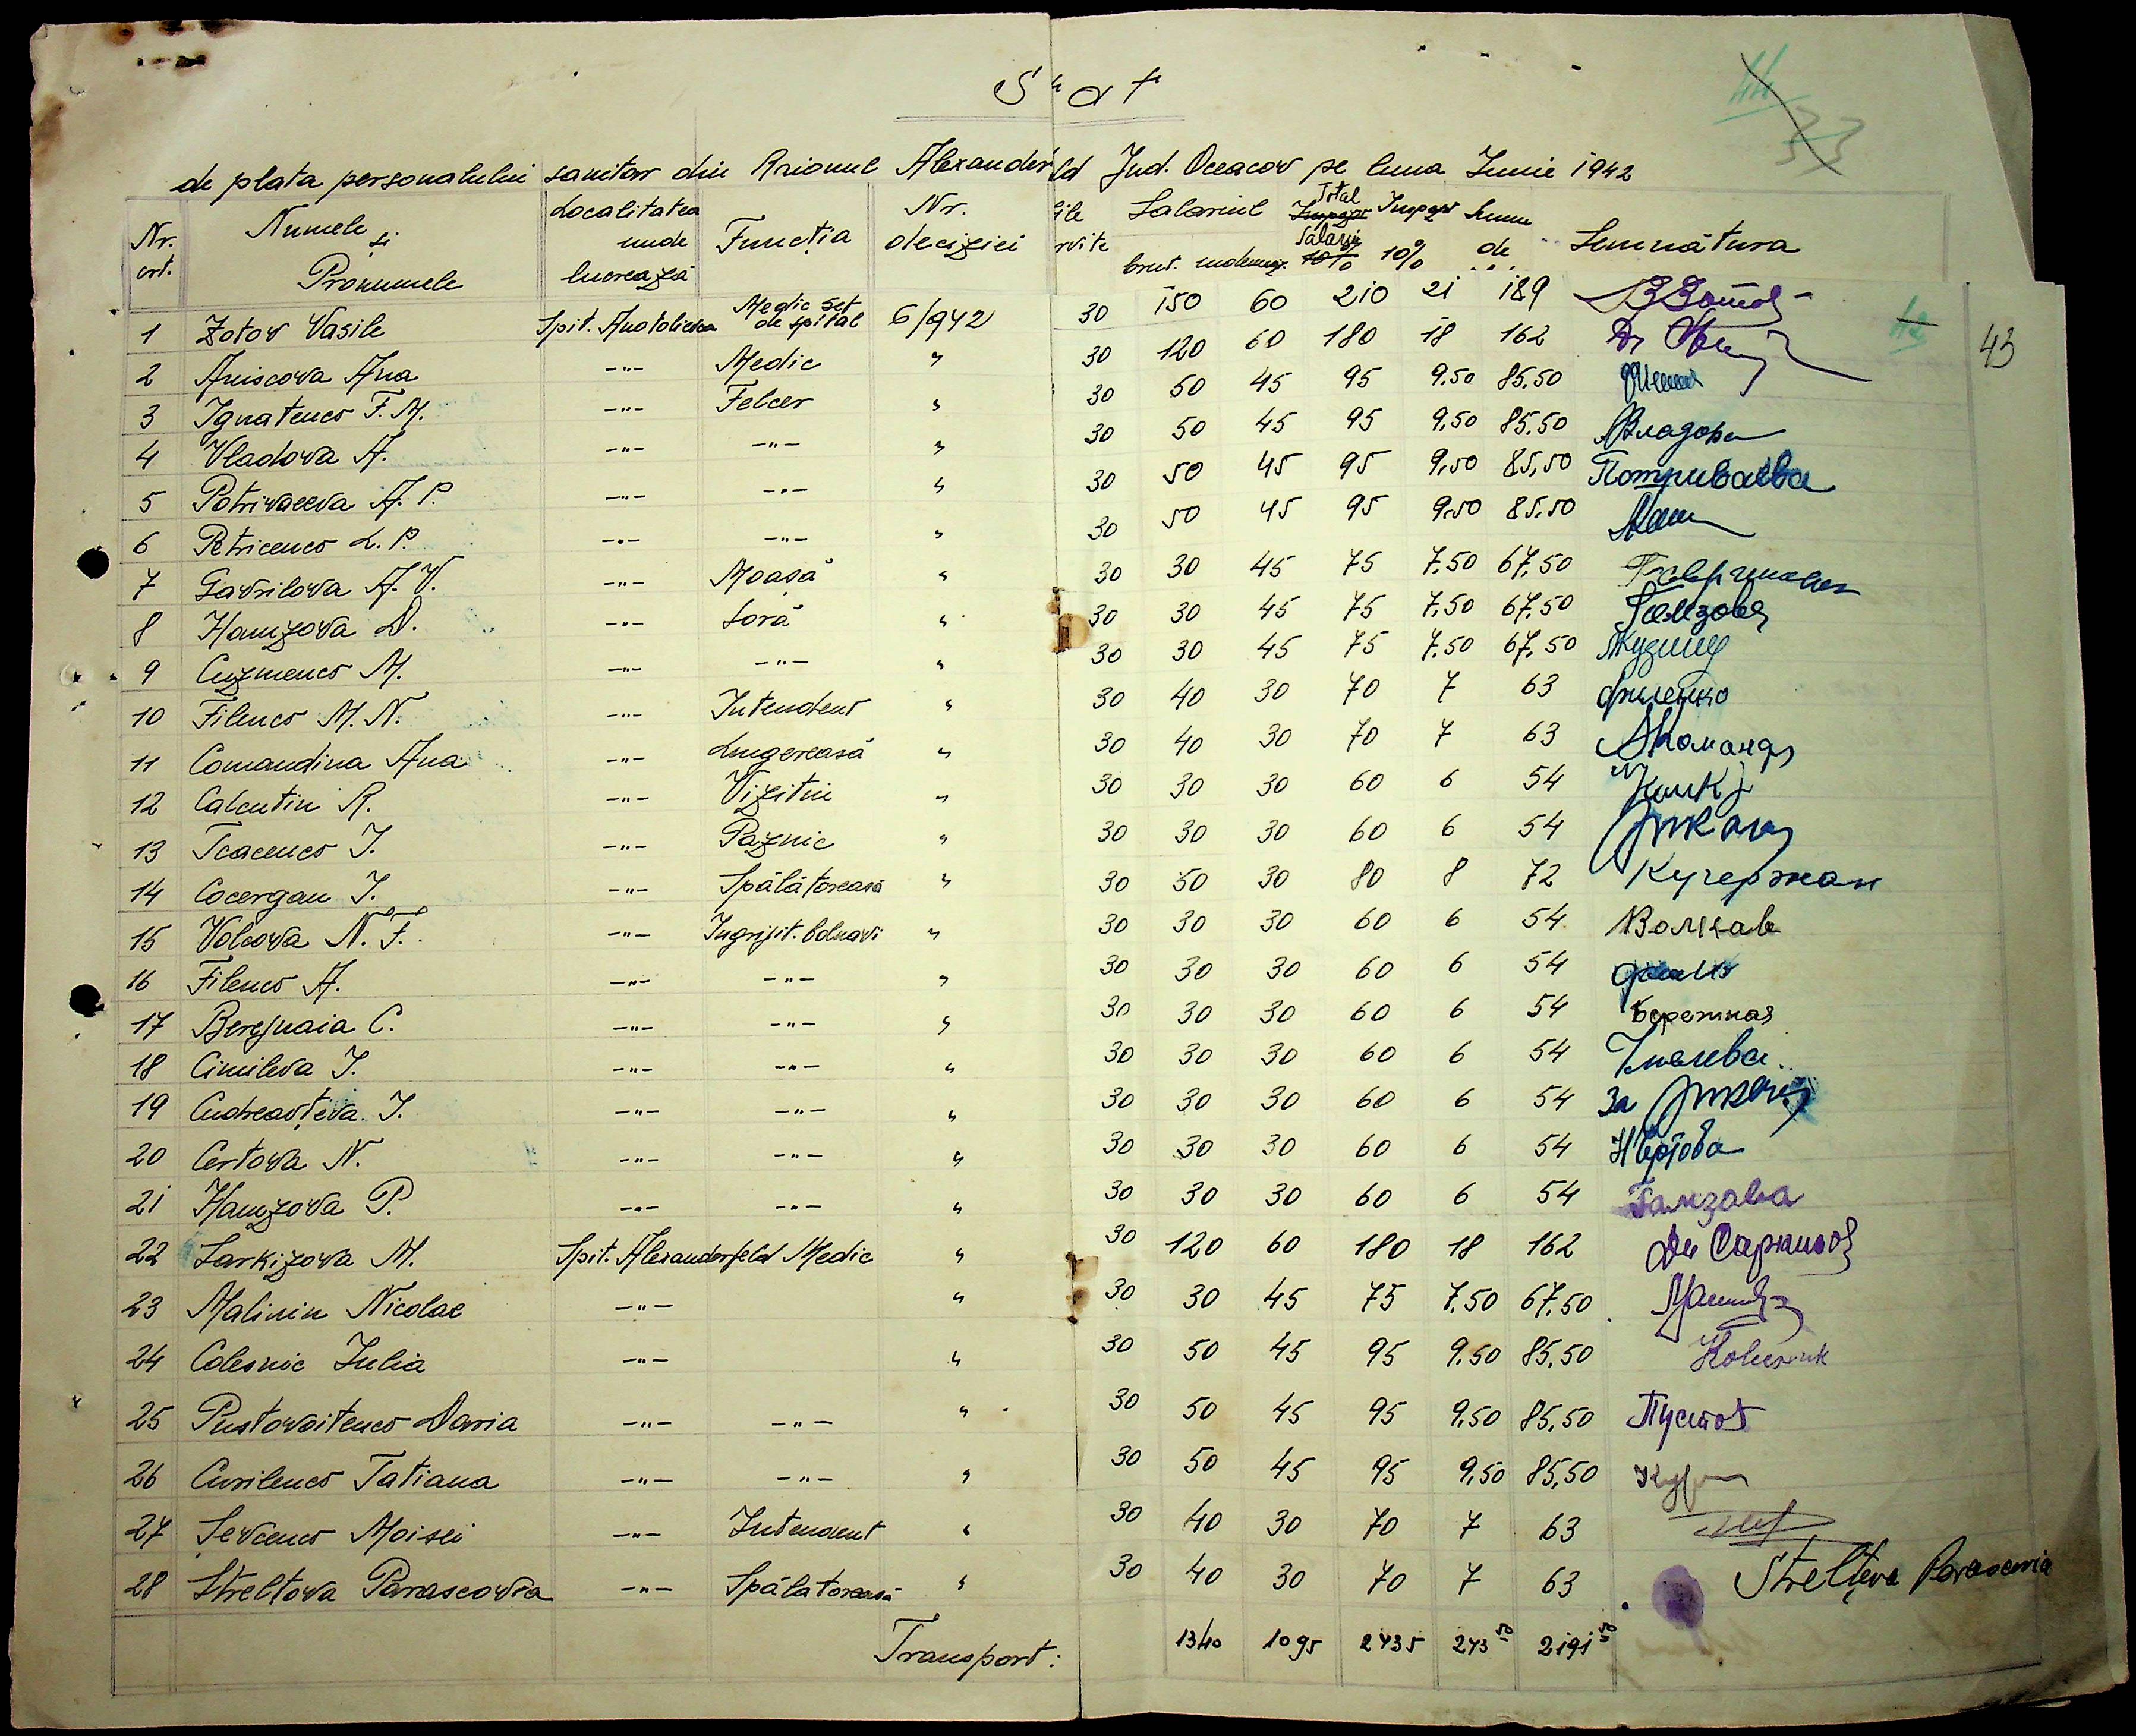 Stat
44
33
de plata personalului sanitar din Raionul Alexanderfeld Jud. Oceacov pe luna Iunie 1942
Nr. crt. Numele și Pronumele Localitatea unde lucrează Funcția Nr. deciziei ile rvite Salariul brut. indemniz. Total Salarii Impozit 10% Suma de Semnătura
1 Zotov Vasile Spit. Anatolievca Medic șef de spital 6/942 30 150 60 210 21 189
42
43
2 Aniscova Ana -"- Medic " 30 120 60 180 18 162 Dr
3 Ignatenco F. M. -"- Felcer " 30 50 45 95 9,50 85,50
4 Vladova A. -"- -"- " 30 50 45 95 9,50 85,50 Владова
5 Potrivaeva A. P. -"- -"- " 30 50 45 95 9,50 85,50 Потриваева
6 Petricenco L. P. -"- -"- " 30 50 45 95 9,50 85,50
7 Gavrilova A. V. -"- Moașă " 30 30 45 75 7,50 67,50
8 Hamzova D. -"- Soră " 30 30 45 75 7,50 67,50 Гамзова
9 Cuzmenco M. -"- -"- " 30 30 45 75 7,50 67,50
10 Filenco M. N. -"- Intendent " 30 40 30 70 7 63 Филенко
11 Comandina Ana -"- Lingereasă " 30 40 30 70 7 63
12 Calcutin R. -"- Vizitiu " 30 30 30 60 6 54
13 Tcacenco I. -"- Paznic " 30 30 30 60 6 54
14 Cocergan I. -"- Spălătoreasă " 30 50 30 80 8 72 Кучержан
15 Volcova N. F. -"- Ingrijit. bolnavi " 30 30 30 60 6 54 Волкав
16 Filenco A. -"- -"- " 30 30 30 60 6 54
17 Berejnaia C. -"- -"- " 30 30 30 60 6 54 Бережная
18 Cimileva I. -"- -"- " 30 30 30 60 6 54
19 Cudreavțeva I. -"- -"- " 30 30 30 60 6 54 За
20 Certova N. -"- -"- " 30 30 30 60 6 54 Н Чертова
21 Hamzova P. -"- -"- " 30 30 30 60 6 54 Гамзава
22 Sarkizova M. Spit. Alexanderfeld Medic " 30 120 60 180 18 162
23 Malinin Nicolae -"- " 30 30 45 75 7,50 67,50
24 Colesnic Iulia -"- " 30 50 45 95 9,50 85,50
25 Pustovoitenco Daria -"- -"- " 30 50 45 95 9,50 85,50 Пустов
26 Curilenco Tatiana -"- -"- " 30 50 45 95 9,50 85,50
27 Șevcenco Moisei -"- Intendent " 30 40 30 70 7 63
28 Strelțova Parascovia -"- Spălătoreasă " 30 40 30 70 7 63 Strelțova
Transport: 1340 1095 2435 243 50 2191 50